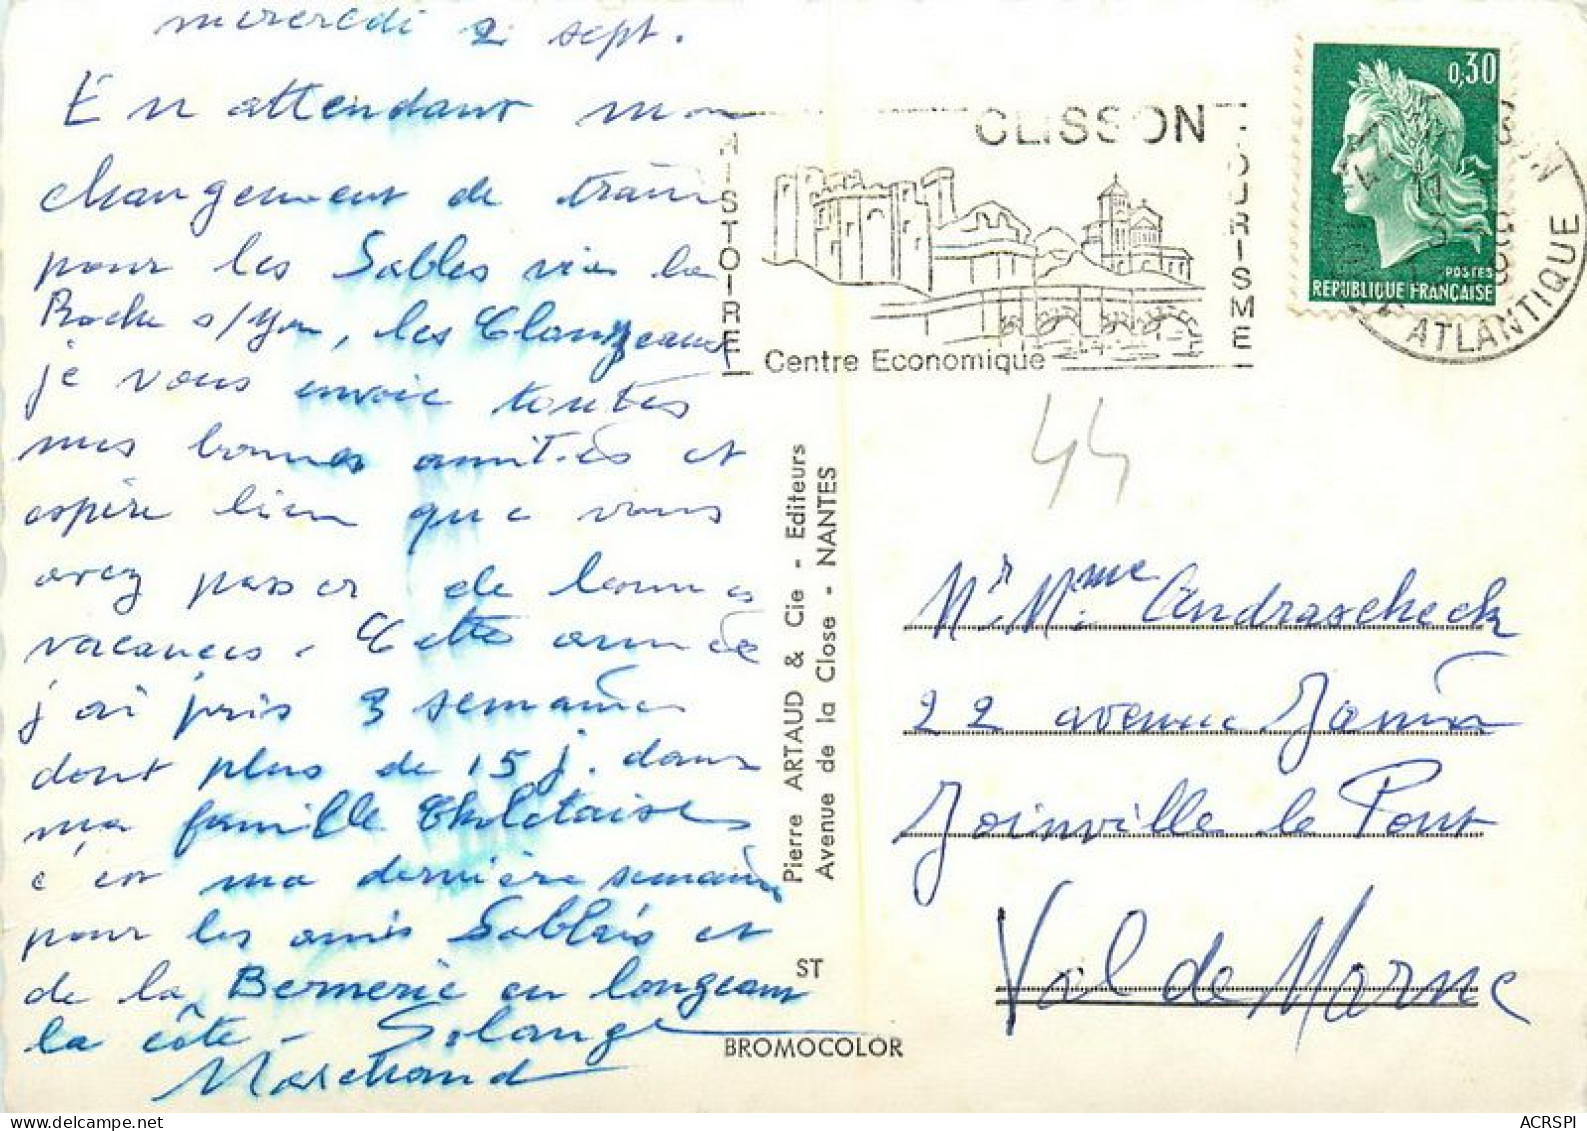 mercredi 2 sept.
En attendant mon
changement de train
pour les Sables via la
Roche s/Yon, les Clouzeaux
je vous envoie toutes
mes bonnes amitiés et
espère bien que vous
avez passer de bonnes
vacances. Cette année
j'ai pris 3 semaines
dont plus de 15 j. dans
ma famille Choletaise
c'est ma dernière semaine
pour les amis Sablais et
de la Bernerie en longeant
la côte - Solange
Marchand
HISTOIRE
CLISSON
TOURISME
Centre Economique
0,30
POSTES
REPUBLIQUE FRANÇAISE
ATLANTIQUE
44
Pierre ARTAUD & Cie - Editeurs
Avenue de la Close - NANTES
ST
BROMOCOLOR
Mr. Mme Andrascheck
22 avenue Joinville le Pont
Val de Marne
ACRSPI